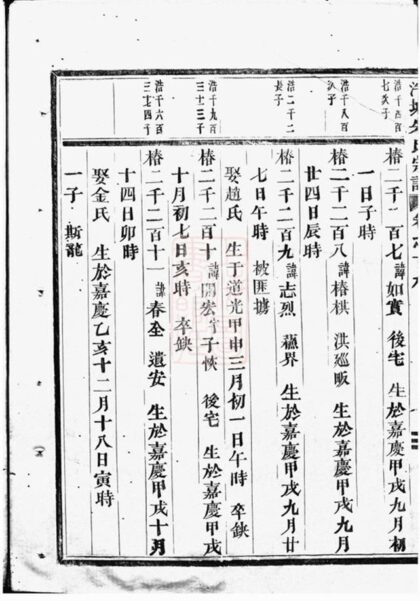 浩千四百
七次子
椿二千二百七 諱如實 後宅 生於嘉慶甲戌九月初
一日子時
浩千八百
次子
椿二千二百八 諱椿棋 洪巡畈 生於嘉慶甲戌九月
廿四日辰時
浩二千二
長子
椿二千二百九 諱志烈 蘊界 生於嘉慶甲戌九月廿
七日午時 被匪擄
娶趙氏 生于道光甲申三月初一日午時 卒缺
浩千九百
三十三子
椿二千二百十 諱開宏 字子恢 後宅 生於嘉慶甲戌
十月初七日亥時 卒缺
浩千六百
椿二千二百十一 諱春全 遺安 生於嘉慶甲戌十月
十四日卯時
娶金氏 生於嘉慶乙亥十二月十八日寅時
一子 斯龍